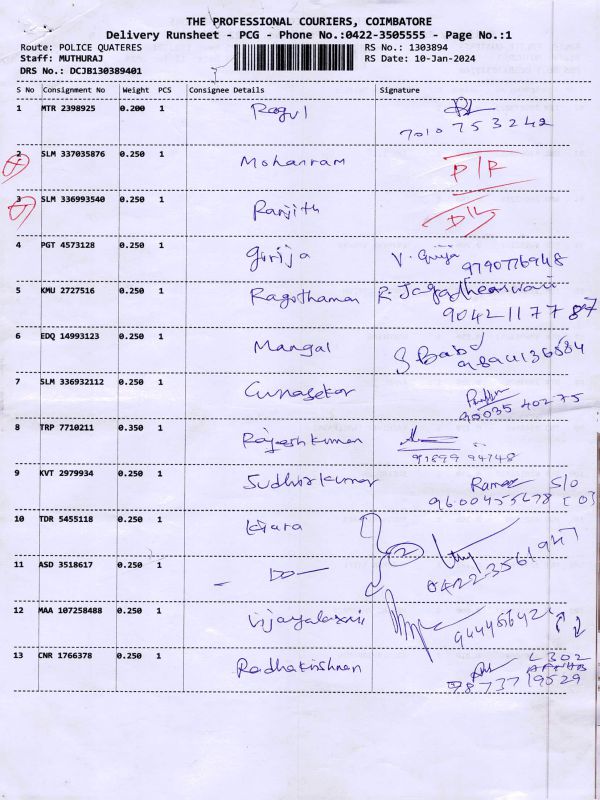 THE PROFESSIONAL COURIERS, COIMBATORE
Delivery Runsheet - PCG - Phone No.:0422-3505555 - Page No.:1
Route: POLICE QUATERES RS No.: 1303894
Staff: MUTHURAJ RS Date: 10-Jan-2024
DRS No.: DCJB130389401
S No Consignment No Weight PCS Consignee Details Signature
1 MTR 2398925 0.200 1 Ragul
7010 753242
2 SLM 337035876 0.250 1 Mohanram D/R
3 SLM 336993540 0.250 1 Ranjith D/L
4 PGT 4573128 0.250 1 Girija V. Girija
9790776948
5 KMU 2727516 0.250 1 Ragothaman R. Jagadheeswari
90421177 87
6 EDQ 14993123 0.250 1 Mangal S Babu
7 SLM 336932112 0.250 1 Gunasekar
90035 40275
8 TRP 7710211 0.350 1 Rajeshkumar
91899 94748
9 KVT 2979934 0.250 1 Sudhirkumar S/O
9600455678
10 TDR 5455118 0.250 1 Kiara
2
11 ASD 3518617 0.250 1 - DO -
0422-3561947
12 MAA 107258488 0.250 1 Vijayalaxmi
13 CNR 1766378 0.250 1 Radhakrishnan L302
9873719529